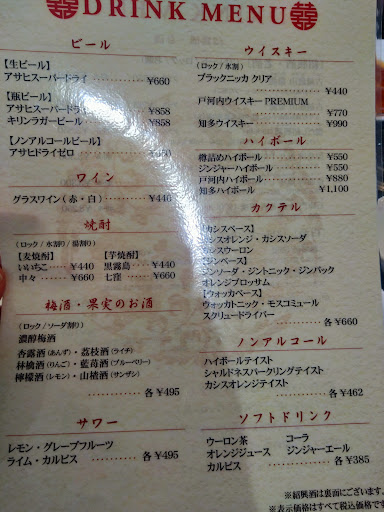 囍DRINK MENU囍
ビール
【生ビール】
アサヒスーパードライ ¥660
【瓶ビール】
アサヒスーパードライ ¥858
キリンラガービール ¥858
【ノンアルコールビール】
アサヒドライゼロ ¥550
ワイン
グラスワイン(赤・白) ¥440
焼酎
(ロック/水割り/湯割り)
【麦焼酎】 【芋焼酎】
いいちこ ¥440 黒霧島 ¥440
中々 ¥660 七窪 ¥660
梅酒・果実のお酒
(ロック/ソーダ割り)
濃醇梅酒
杏露酒(あんず)・茘枝酒(ライチ)
林檎酒(りんご)・藍苺酒(ブルーベリー)
檸檬酒(レモン)・山楂酒(サンザシ)
各¥495
サワー
レモン・グレープフルーツ
ライム・カルピス 各¥495
ウイスキー
(ロック/水割)
ブラックニッカ クリア
¥440
戸河内ウイスキー PREMIUM
¥770
知多ウイスキー ¥990
ハイボール
樽詰めハイボール ¥550
ジンジャーハイボール ¥550
戸河内ハイボール ¥880
知多ハイボール ¥1,100
カクテル
【カシスベース】
カシスオレンジ・カシスソーダ
カシスウーロン
【ジンベース】
ジンソーダ・ジントニック・ジンバック
オレンジブロッサム
【ウォッカベース】
ウォッカトニック・モスコミュール
スクリュードライバー
各¥660
ノンアルコール
ハイボールテイスト
シャルドネスパークリングテイスト
カシスオレンジテイスト
各¥462
ソフトドリンク
ウーロン茶 コーラ
オレンジジュース ジンジャーエール
カルピス 各¥385
※紹興酒は裏面にございます。
※表示価格はすべて税込価格です